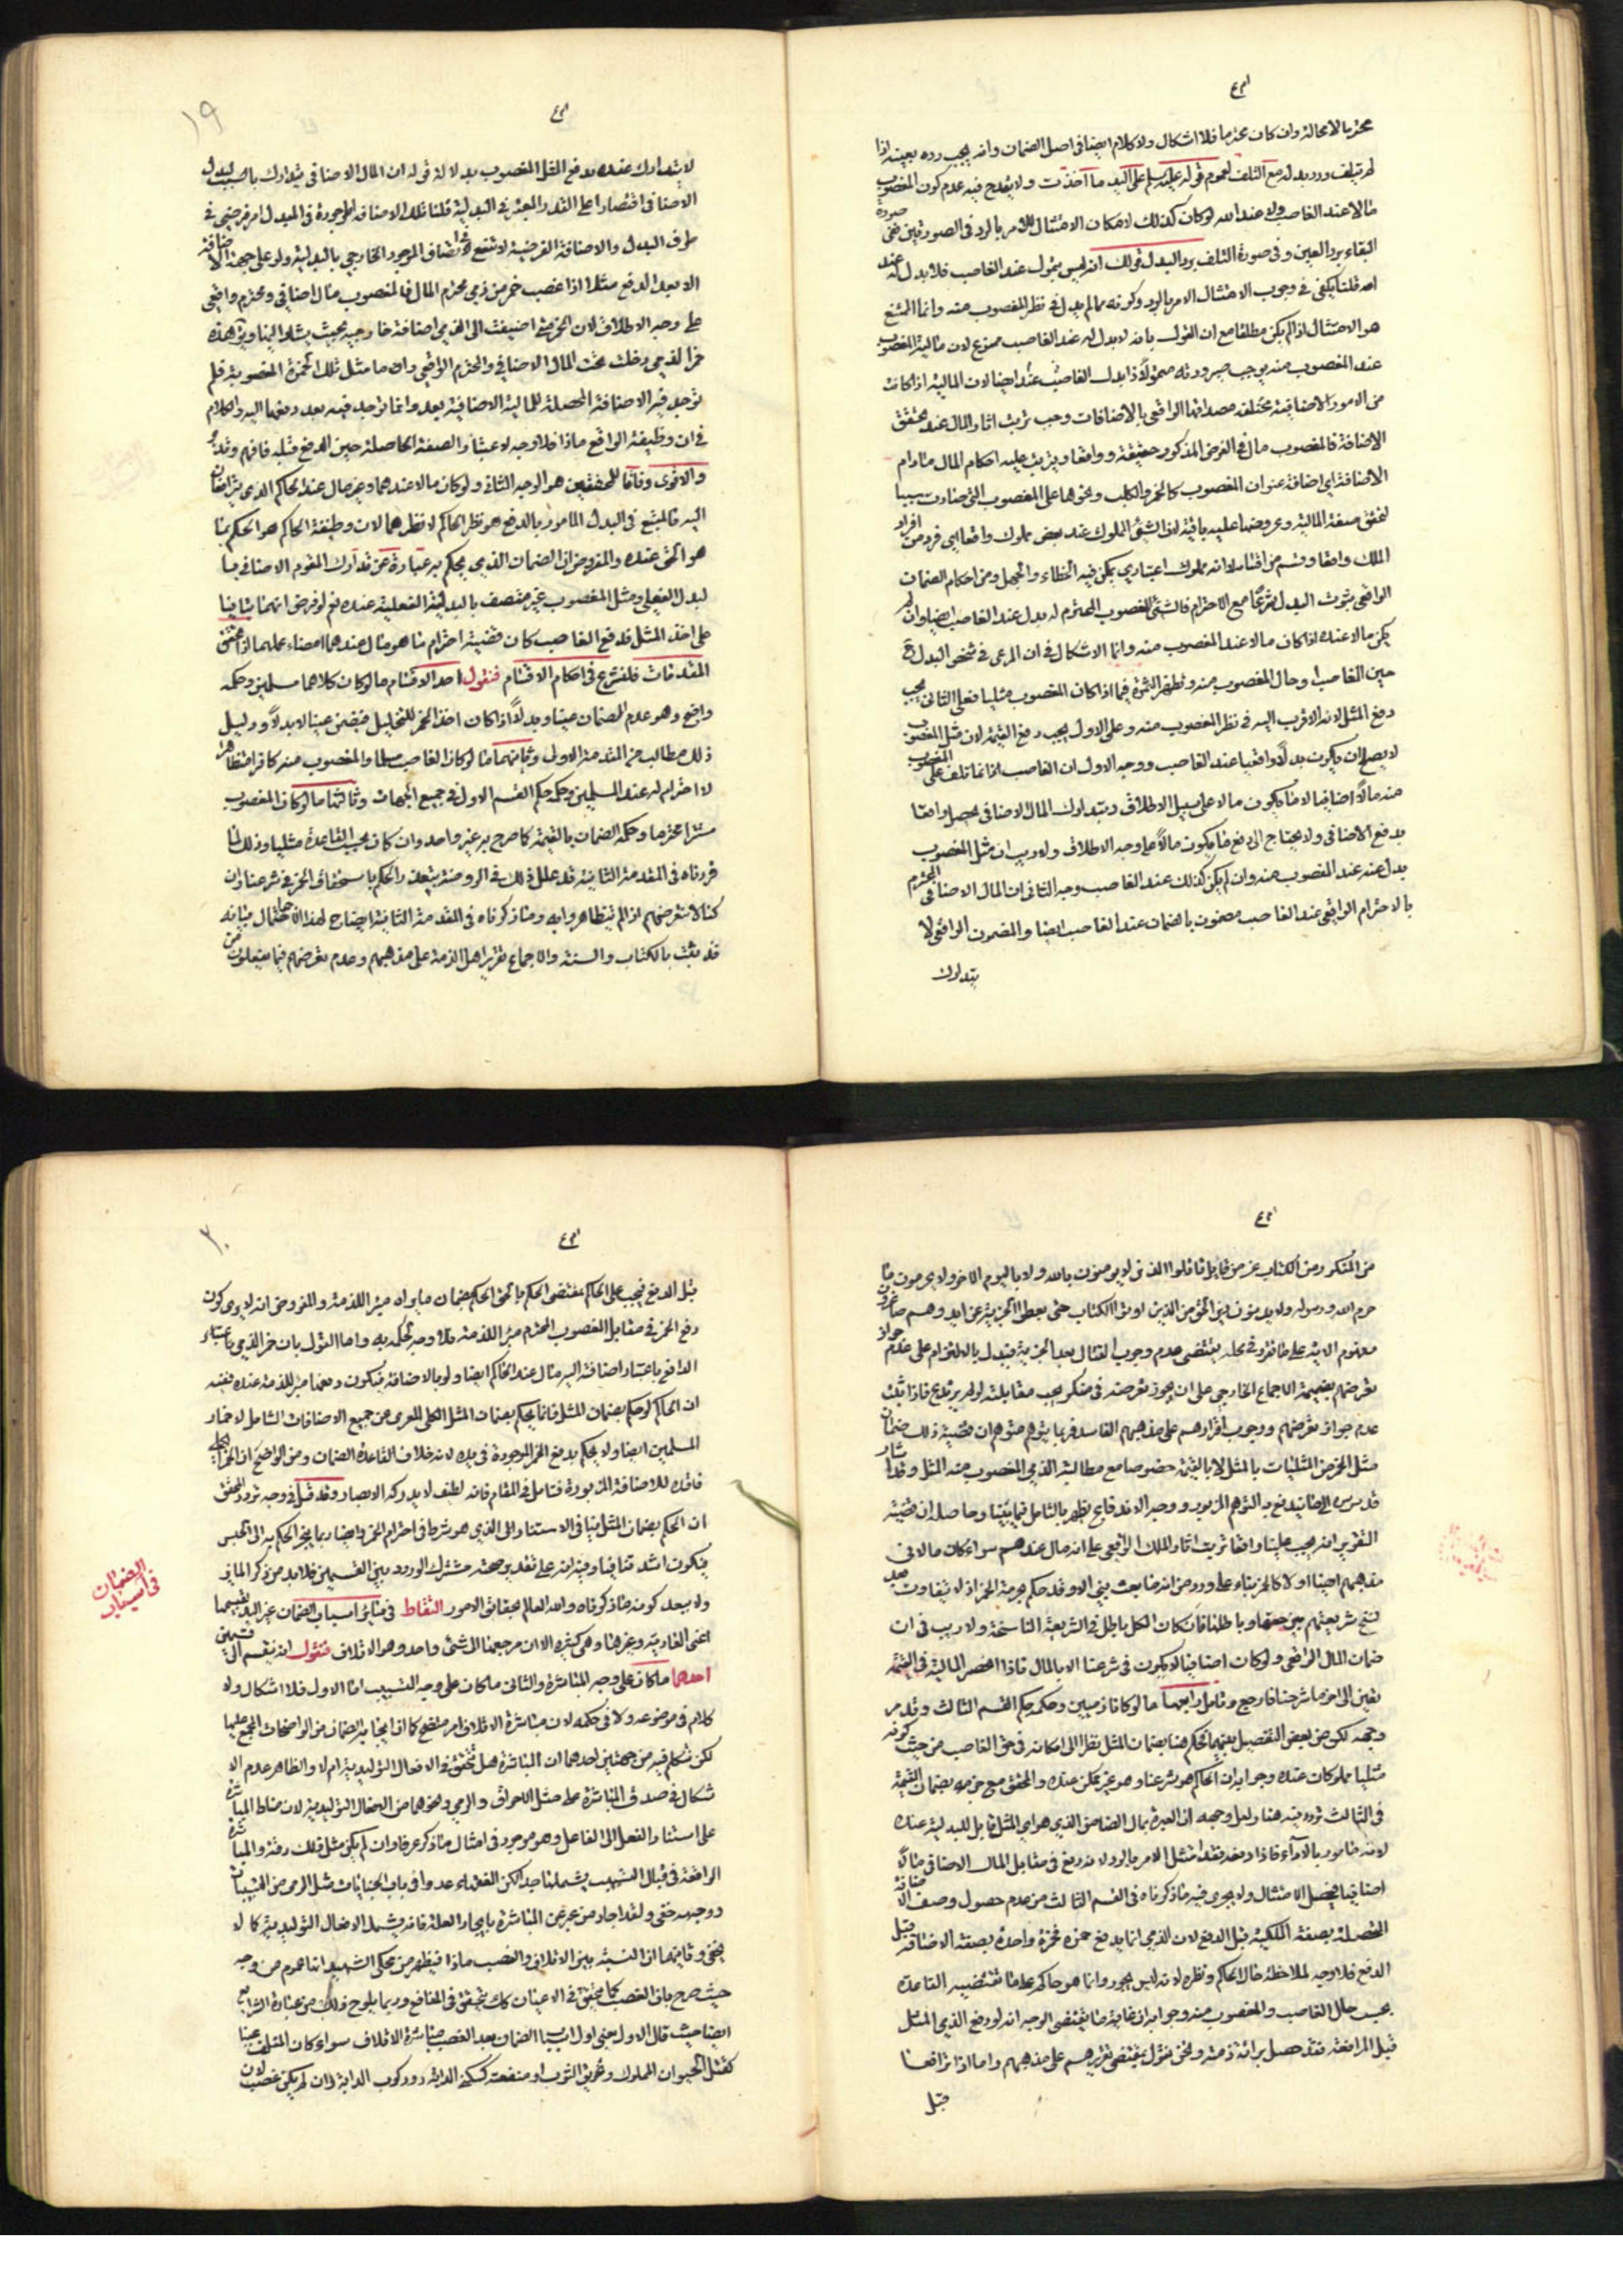 محترما لامحالة وان كان محترما فلا اشكال ولا كلام ايضا فى اصل الضمان وانه يجب رده بعينه اذا
لم يتلف ورد بدله مع التلف لعموم قوله على اليد ما اخذت ولا يقدح فيه عدم كون المغصوب
مالا عند الغاصب ولا عند الله لو كان كذلك لامكان الامتثال للامر بالرد فى الصورتين ففى صورة
البقاء يرد العين وفى صورة التلف يرد البدل قولك انه ليس بمول عند الغاصب فلا بدل له عند
احد قلنا يكفى فى وجوب الامتثال الامر بالرد وكونه مما له بدل فى نظر المغصوب منه وانما الممتنع
هو الامتثال اذا لم يكن مطلقا مع ان القول بانه لا بدل له عند الغاصب ممنوع لان مالية المغصوب
عند المغصوب منه يوجب صيرورته ذا بدل عند الغاصب ايضا لان المالية اذا كانت
من الامور الاضافية مختلفة مصداقها الواقعى بالاضافات وجب ترتب اثار المال عند تحقق
الاضافة فالمغصوب مال فى الفرض المذكور حقيقة وواقعا ويترتب عليه احكام المال ما دام
الاضافة اى اضافة عنوان المغصوب كالخمر والكلب ونحوهما على المغصوب التى صارت سببا
لتحقق صفة المالية وعروضها عليه باقية لان الشئ المملوك عند بعض مملوك واقعا اى فرد من افراد
الملك واقعا وقسم من اقسامه لا انه مملوك اعتبارى يمكن فيه الخطاء والجهل ومن احكام الضمان
الواقعى ثبوت البدل شرعا مع الاحترام فالشئ المغصوب المحترم له بدل عند الغاصب ايضا وان لم
يكن مالا عنده اذا كان مالا عند المغصوب منه وانما الاشكال فى ان المرعى فى شخص البدل فى
حين الغاصب او حال المغصوب منه وتظهر الثمرة فيما اذا كان المغصوب مثليا فعلى الثانى يجب
دفع المثل لانه الاقرب اليه فى نظر المغصوب منه وعلى الاول يجب دفع القيمة لان مثل المغصوب
لا يصلح ان يكون بدلا واقعيا عند الغاصب ووجه الاول ان الغاصب انما اتلف على المغصوب
منه مالا اضافيا لا ما يكون مالا على سبيل الاطلاق وتدارك المال الاضافى يحصل واقعا
بدفع الاضافى ولا يحتاج الى دفع ما يكون مالا على وجه الاطلاق ولا ريب ان مثل المغصوب
بدل عنه عند المغصوب منه وان لم يكن كذلك عند الغاصب وجه الثانى ان المال الاضافى المحترم
بالاحترام الواقعى عند الغاصب مضمون بالضمان عند الغاصب ايضا والمضمون الواقعى لا
يتدارك
١٩
لا يتدارك عنده بدفع المثل المغصوب بدلالة قوله ان المال الاضافى يتدارك بالبدل
الاضافى اقتصارا على القدر المعتبر فى البدلية قلنا تلك الاضافة الموجودة فى المبدل امر فرضى فى
طرف البدل والاضافة الفرضية لا تنفع فى اتصاف الموجود الخارجى بالبدلية ولو على جهة الاضافة
الا بعد الدفع مثلا اذا غصب خمر من ذمى محترم المال فالمغصوب مال اضافى ومحترم واقعى
على وجه الاطلاق لان الخمر متى اضيفت الى الذمى اضافة خارجية بحيث يشار اليها ويق هذه
خمر الذمى دخلت تحت المال الاضافى والمحترم الواقعى واما مثل تلك الخمرة المغصوبة فلم
توجد فيه الاضافة المحصلة للمالية الاضافية بعد وانما توجد فيه بعد دفعها اليه والكلام
فى ان وظيفة الواقع ماذا فلا وجه لاعتبار الصفة الحاصلة حين الدفع قبله فافهم وتدبر
والاقوى وفاقا للمحققين هو الوجه الثانى ولو كان مالا عندهما وغير مال عند الحاكم الذى يترافعان
اليه فالمتبع فى البدل المامور بالدفع هو نظر الحاكم لا نظرهما لان وظيفة الحاكم هو الحكم بما
هو الحق عنده والمفروض ان الضمان الذى يحكم به عبارة عن تدارك المقوم الاضافى بما
لبدل الفعلى ومثل المغصوب غير متصف بالبدلية الفعلية عنده نعم لو فرض انهما بنايبا
على اخذ المثل فدفع الغاصب كان قضية احترام ما هو مال عندهما امضاء عملهما اذا تحققت
المقدمات فلنشرع فى احكام الاقسام فنقول احد الاقسام ما لو كان كلاهما مسلمين وحكمه
واضح وهو عدم الضمان عينا وبدلا الا اذا كان اخذ الخمر للتخليل فيضمن عينا لا بدلا ودليل
ذلك مطالب من المقدمة الاولى وثانيهما ما لو كان الغاصب مسلما والمغصوب منه كافرا متظاهرا
لا احترام له عند المسلمين وحكمه حكم القسم الاول فى جميع الجهات وثالثها ما لو كان المغصوب
مستترا محترما وحكمه الضمان بالقيمة كما صرح به غير واحد وان كان بحسب القاعدة مثليا وذلك لما
قررناه فى المقدمة الثانية قد علل ذلك فى الروضة بتعذر الحكم باستحقاق الخمر فى شرعنا وان
كنا لا نتعرضهم اذا لم يتظاهروا به وما ذكرناه فى المقدمة الثانية ايضاح لهذا الاجمال بيانه
قد ثبت بالكتاب والسنة والاجماع تقرير اهل الذمة على مذهبهم وعدم تعرضهم فيما يفعلون من
من المنكر ومن الكتاب عز من قائل قاتلوا الذين لا يؤمنون بالله ولا باليوم الاخر ولا يحرمون ما
حرم الله ورسوله ولا يدينون دين الحق من الذين اوتوا الكتاب حتى يعطوا الجزية عن يد وهم صاغرون
مفهوم الاية على ما تقرر فى محله يقتضى عدم وجوب القتال بعد الجزية فيدل بالالتزام على عدم جواز
تعرضهم بضميمة الاجماع الخارجى على ان يجوز تعرضه فى منكر يجب مقابلته لو لم يرتدع فاذا ثبت
عدم جواز تعرضهم ووجوب اقرارهم على مذهبهم الفاسد فربما يتوهم متوهم ان قضية ذلك ضمان
مثل الخمر من المثليات بالمثل لا بالقيمة خصوصا مع مطالبة الذمى المغصوب منه المثل وقد اشار
قدس سره الى ما يندفع به التوهم المزبور ووجه الاندفاع يظهر بالتامل فيما بينا وحاصله ان قضية
التقرير انه يجب علينا واقعا ترتيب اثار الملك الواقعى على انه مال عندهم سواء كان مالا فى
مذهبهم ايضا اولا كالخمر بناء على ورود حرمتها لا يتفاوت بعد
نسخ شريعتهم بين حقها وباطلها فان كان الكل باطل فى الشريعة الناسخة ولا ريب فى ان
ضمان المال الواقعى ولو كان اضافيا لا يكون فى شرعنا الا بالمال فاذا انحصر المالية فى القيمة
تعين الى اخر ما شرحنا فارجع وتامل رابعها ما لو كانا ذميين وحكمه حكم القسم الثالث وقد مر
وجهه لكن عن بعض التفصيل بينهما لحكم هنا بضمان المثل نظرا الى امكانه فى حق الغاصب من حيث كونه
مثليا مملوكا عنده وجوابه ان الحاكم هو شرعنا وهو غير ممكن عنده والمحقق مع جزمه بضمان القيمة
فى الثالث تردد فيه هنا ولعل وجهه ان العبرة بمال الضامن الذى هو اى المثل قابل للبدلية عنده
لانه مامور بالاداء فاذا دفعه فقد امتثل الامر بالرد لانه دفع فى مقابل المال الاضافى مالا
اضافيا فيحصل الامتثال ولا يجرى فيه ما ذكرناه فى القسم الثالث من عدم حصول وصف الاضافة
المحصلة بصفة الملكية قبل الدفع لان الذمى انما يدفع خمره فخمره واحدة بصفة الاضافة قبل
الدفع فلا وجه لملاحظة حال الحاكم ونظره لانه ليس بمجور وانما هو حاكم على ما تقتضيه القاعدة
بحسب حال الغاصب والمغصوب منه وجوابه ان غاية ما يقتضى الوجه انه لو دفع الذمى المثل
قبل المرافعة فقد حصل برائة ذمته ونحن نقول بمقتضى تقريرهم على مذهبهم واما اذا ترافعا
قبل
٢٠
قبل الدفع فيجب على الحاكم بمقتضى الحكم بالحق الحكم بضمان ما يراه مبرء للذمة والمفروض انه لا يرى كون
دفع الخمر فى مقابل المغصوب المحترم مبرء للذمة فلا وجه لحكمه به واما القول بان خمر الذمى باعتبار
الدافع باعتبار اضافة اليه مال عند الحاكم ايضا ولو بالاضافة فيكون دفعها مبرء للذمة عنده ففيه
ان الحاكم لو حكم بضمان المثل فانما يحكم بضمان المثل الكلى المعرى عن جميع الاضافات الشامل لاخمار
المسلمين ايضا ولا يحكم بدفع الخمر الموجودة فى يده لانه خلاف القاعدة الضمان ومن الواضح ان الخمر الكلى
فاقده للاضافة المزبورة فتامل فى المقام فانه لطيف لا يدركه الابصار وقد قيل فى وجه تردد المحقق
ان الحكم بضمان المثل ينافى الاستتار الذى هو شرط فى احترام الخمر وايضا ربما ينجر الحكم به الى الحبس
فيكون اشد تنافيا وفيه انه على تقدير صحته مشترك الورود بين القسمين فلا بد من ذكر المايز
ولا يبعد كونه ما ذكرناه والله العالم بحقائق الامور التقاط فى سائر اسباب الضمان غير اليد بقسميها
اعنى العادية وغيرها وهى كثيرة الا ان مرجعها الى شئ واحد وهو الاتلاف فنقول انه ينقسم الى قسمين
احدهما ما كان على وجه المباشرة والثانى ما كان على وجه التسبيب اما الاول فلا اشكال ولا
كلام فى موضوعه ولا فى حكمه لان مباشرة الاتلاف امر متضح كما ان ايجابه الضمان من الواضحات المجمع عليها
لكن نتكلم فيه من جهتين احدهما ان المباشرة هل تتحقق فى الافعال التوليدية ام لا والظاهر عدم الا
شكال فى صدق المباشرة على مثل الاحراق والرمى ونحوهما من الافعال التوليدية لان مناط المباشرة
على استناد الفعل الى الفاعل وهو موجود فى امثال ما ذكر عرفا وان لم يكن مثل ذلك دقة والمباشرة
الواقعة فى قبال التسبيب يشملها جدا لكن الفقهاء عدوا فى باب الجنايات مثل الرمى من التسبيبات
ووجهه خفى ولقد اجاد من عبر عن المباشرة بايجاد العلة فانه يشمل الافعال التوليدية كما لا
يخفى وثانيهما ان النسبة بين الاتلاف والغصب ماذا فيظهر من محكى الشهيد انها عموم من وجه
حيث صرح بان الغصب كما يتحقق فى الاعيان كك يتحقق فى المنافع وربما يلوح ذلك من عبارة الشرايع
ايضا حيث قال الاول يعنى اول اسباب الضمان بعد الغصب مباشرة الاتلاف سواء كان المتلف عينا
كقتل الحيوان المملوك وتخريق الثوب او منفعته كسكنى الدار وركوب الدابة وان لم يكن غصب لان
الضمانات
فى اسباب